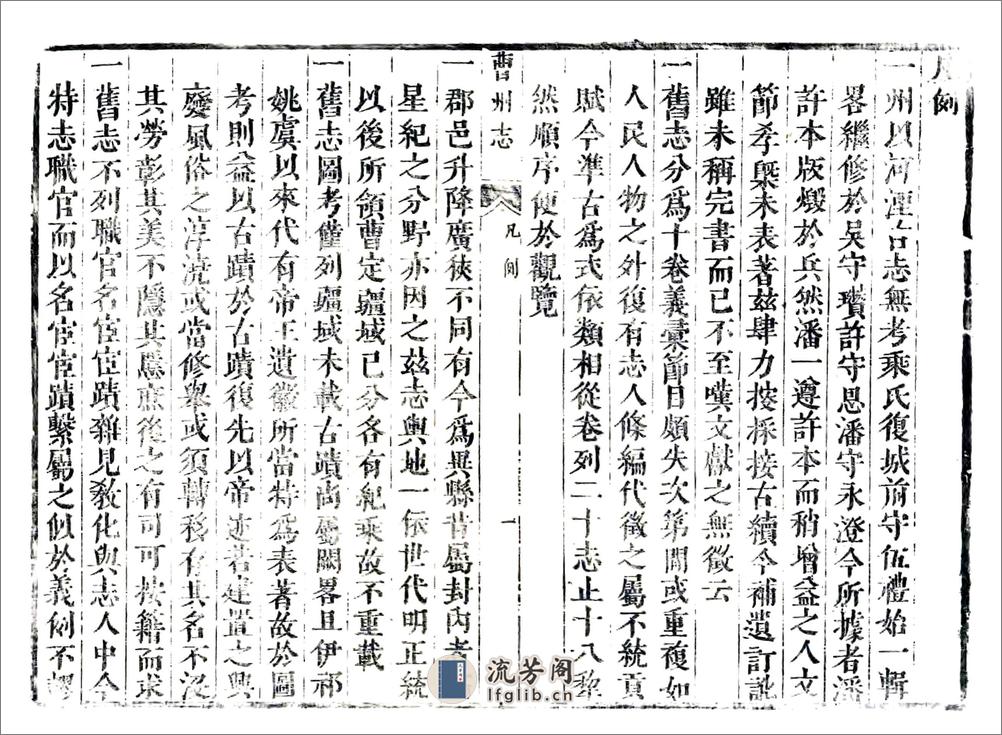 凡例
一州以河湮古志無考乘氏復城前守伍禮始一輯
畧繼修於吳守瓚許守恩潘守永澄今所據者潘
許本版燬於兵然潘一遵許本而稍增益之人文
節孝槩未表著玆肆力按採接古續今補遺訂訛
雖未稱完書而已不至嘆文獻之無徵云
一舊志分爲十卷義彙節目頗失次第間或重複如
人民人物之外復有志人條編代徵之屬不統貢
賦今準古爲式依類相從卷列二十志止十八犂
然順序便於觀覽
曹州志
凡例
一
一郡邑升降廣狹不同有今爲異縣昔屬封內者
星紀之分野亦因之玆志輿地一依世代明正統
以後所領曹定疆域已分各有紀乘故不重載
一舊志圖考僅列疆域未載古蹟尚屬闕畧且伊祁
姚虞以來代有帝王遺徽所當特爲表著故於圖
考則益以古蹟於古蹟復先以帝迹若建置之興
廢風俗之淳澆或當修舉或須轉移存其名不沒
其勞彰其美不隱其慝庶後之有司可按籍而求
一舊志不列職官名宦宦蹟雜見敎化與志人中今
特志職官而以名宦宦蹟繫屬之似於義例不謬
流芳阁
lfglib.cn